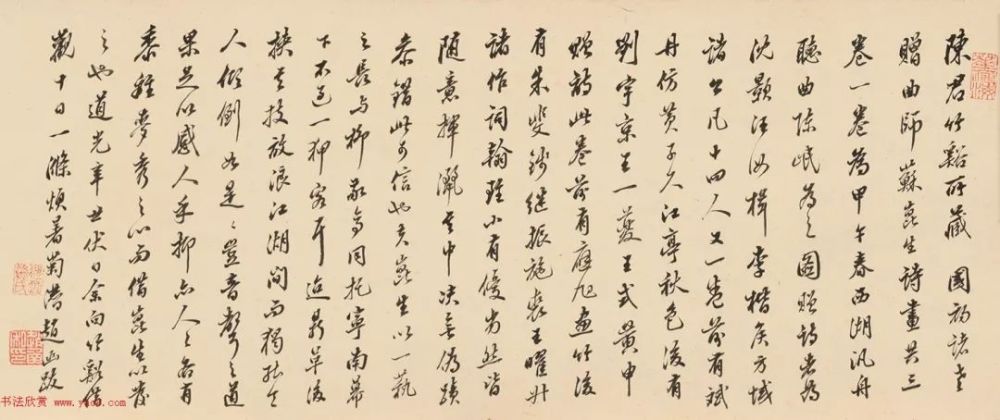 陳君竹谿所藏 國初諸老
贈曲師蘇崑生詩畫共三
卷一卷為甲午春西湖汎舟
聽曲陳岷為之圖贈詩者為
沈顥汪汝楫李楷侯方域
諸公凡十四人又一卷前有
丹仿黃子久江亭秋色後有
劉宇京王一蘷王弍黃申
贈詩此卷前有 旭畫竹後
有朱斐錢繼振施 王曜升
諸作詞翰雖小有優劣然皆
随意揮灑其中決無偽蹟
參錯此可信也夫崑生以一藝
之長与柳敬亭同托寧南幕
下不過一狎客耳迨 革後
挾其技放浪江湖間而獨 
人傾倒如是是豈音聲之道
果足以感人乎抑亦人人各有
黍離麥秀之心而借崑生以發
之也道光辛丑伏日余向竹谿借
觀十日一滌煩暑 潛趙 跋
书法欣赏 www.yac8.com